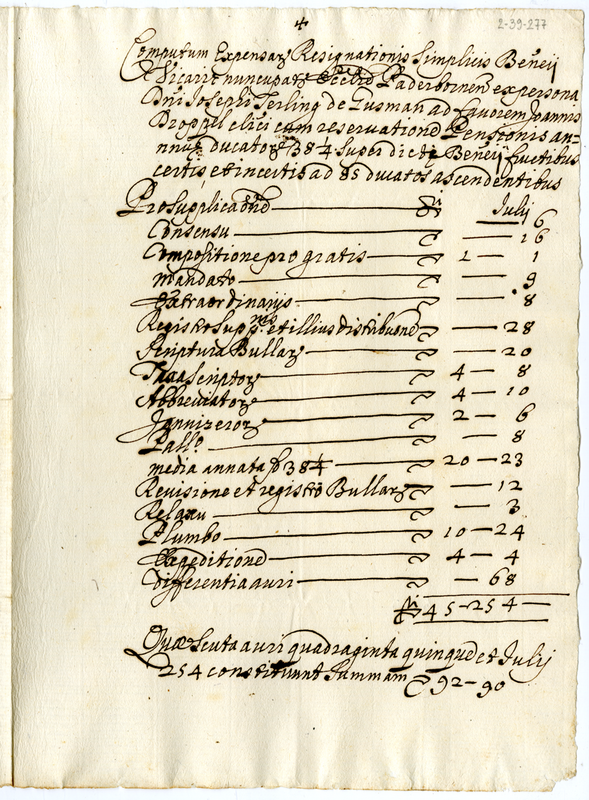 2-39-277
+
Computum Expensarz Resignationis Simplicis Beneij
et Vicarie nuncupatz Ecclie Paderbornen ex persona
Dni Josephi Terling de Gusman ad favorem Joannis
Droppel clici cum reservatione Pensionis an=
nue ducatorz 384 super dicti Beneij fructibus
certis et incertis ad 85 ducatos ascendentibus
Pro supplicaone Julij 6
Consensu 16
Compositione pro gratis 2 — 1
mandato 9
Extraordinarijs 8
Registro supnis et illius distribuone 28
Scriptura Bullarz 20
Taxa Scriptorz 4 — 8
Abbreviatorz 4 — 10
Jannizerorz 2 — 6
Pallo 8
media annata so 384 20 — 23
Revisione et registro Bullarz 12
Relaxu 3
Plumbo 10 — 24
Expeditione 4 — 4
differentia auri 68
45 — 254
Quae scuta auri quadraginta quinque et Julij
254 constituunt summam 92 — 90